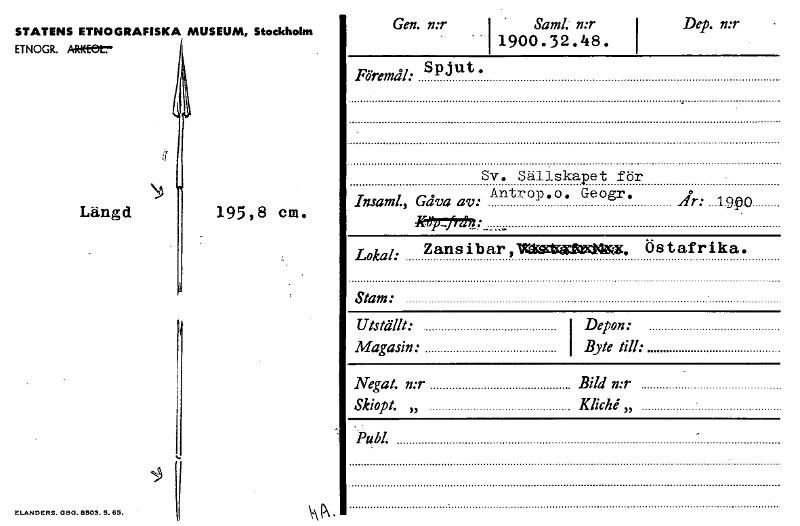 STATENS ETNOGRAFISKA MUSEUM, Stockholm
ETNOGR. ARKEOL.
Längd 195,8 cm.
ELANDERS. GBG. 8503. 5. 65.
HA.
Gen. n:r Saml. n:r Dep. n:r
1900.32.48.
Föremål: Spjut.
Sv. Sällskapet för
Insaml., Gåva av: Antrop.o. Geogr. År: 1900
Köp från:
Lokal: Zansibar, Västafrika. Östafrika.
Stam:
Utställt: Depon:
Magasin: Byte till:
Negat. n:r Bild n:r
Skiopt. „ Kliché „
Publ.